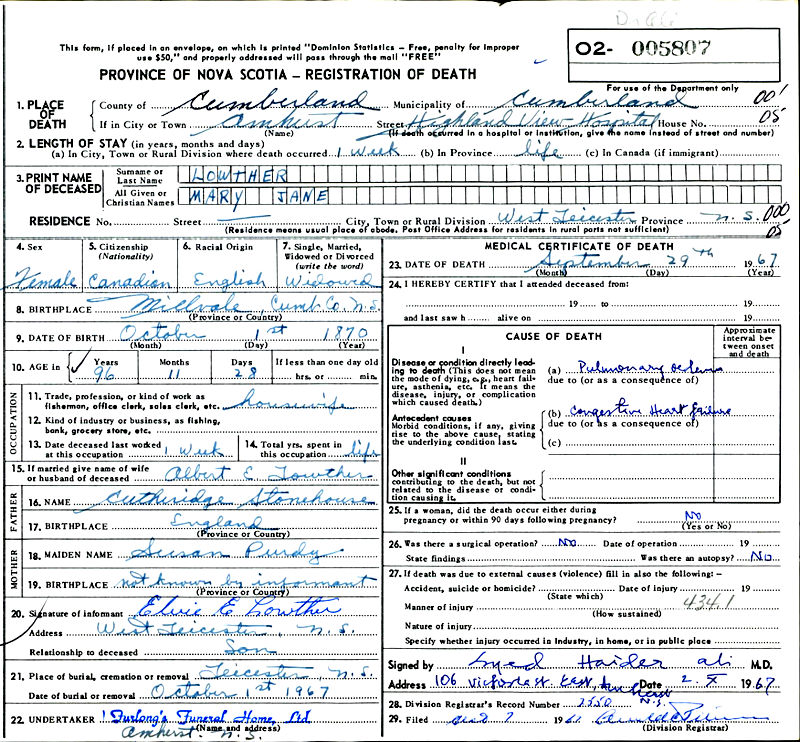 This form, if placed in an envelope, on which is printed "Dominion Statistics – Free, penalty for improper
use $50," and properly addressed will pass through the mail "FREE"
O2- 005807
PROVINCE OF NOVA SCOTIA – REGISTRATION OF DEATH
For use of the Department only
1. PLACE OF DEATH County of Cumberland Municipality of Cumberland 001
If in City or Town Amherst Street Highland View Hospital House No. 05
(Name) (If death occurred in a hospital or institution, give the name instead of street and number)
2. LENGTH OF STAY (in years, months and days)
(a) In City, Town or Rural Division where death occurred 1 Week (b) In Province life (c) In Canada (if immigrant)
3. PRINT NAME OF DECEASED Surname or Last Name LOWTHER
All Given or Christian Names MARY JANE
RESIDENCE No. Street City, Town or Rural Division West Leicester Province N.S. 000
(Residence means usual place of abode. Post Office Address for residents in rural parts not sufficient) 05
4. Sex 5. Citizenship (Nationality) 6. Racial Origin 7. Single, Married, Widowed or Divorced (write the word)
Female Canadian English Widowed
8. BIRTHPLACE Millvale, Cumb. Co. N.S.
(Province or Country)
9. DATE OF BIRTH October 1st 1870
(Month) (Day) (Year)
10. AGE in Years Months Days If less than one day old
96 11 28 hrs. or min.
OCCUPATION
11. Trade, profession, or kind of work as
fishermen, office clerk, sales clerk, etc. housewife
12. Kind of industry or business, as fishing,
bank, grocery store, etc.
13. Date deceased last worked at this occupation 1 Week 14. Total yrs. spent in this occupation life
15. If married give name of wife
or husband of deceased Albert E Lowther
FATHER
16. NAME Cutheridge Stonehouse
17. BIRTHPLACE England
(Province or Country)
MOTHER
18. MAIDEN NAME Susan Purdy
19. BIRTHPLACE not known by informant
(Province or Country)
20. Signature of informant E Lowther
Address West Leicester, N.S.
Relationship to deceased Son
21. Place of burial, cremation or removal Leicester, N.S.
Date of burial or removal October 1st 1967
22. UNDERTAKER Furlong's Funeral Home, Ltd
(Name and address)
Amherst N.S.
MEDICAL CERTIFICATE OF DEATH
23. DATE OF DEATH September 29th 1967
(Month) (Day) (Year)
24. I HEREBY CERTIFY that I attended deceased from:
19 to 19
and last saw h alive on 19
CAUSE OF DEATH Approximate interval between onset and death
I
Disease or condition directly leading to death (This does not mean the mode of dying, e.g., heart failure, asthenia, etc. It means the disease, injury, or complication which caused death.)
(a) Pulmonary oedema
due to (or as a consequence of)
Antecedent causes
Morbid conditions, if any, giving rise to the above cause, stating the underlying condition last.
(b) Congestive Heart failure
due to (or as a consequence of)
(c)
II
Other significant conditions
contributing to the death, but not related to the disease or condition causing it.
25. If a woman, did the death occur either during
pregnancy or within 90 days following pregnancy? No
(Yes or No)
26. Was there a surgical operation? No Date of operation 19
State findings Was there an autopsy? No
27. If death was due to external causes (violence) fill in also the following: –
Accident, suicide or homicide? Date of injury 19
(State which)
Manner of injury 434.1
(How sustained)
Nature of injury
Specify whether injury occurred in industry, in home, or in public place
Signed by Syed Haider Ali M.D.
Address 106 Victoria St. East, Amherst N.S. Date 2.X 1967
28. Division Registrar's Record Number 2550
29. Filed 19
(Division Registrar)